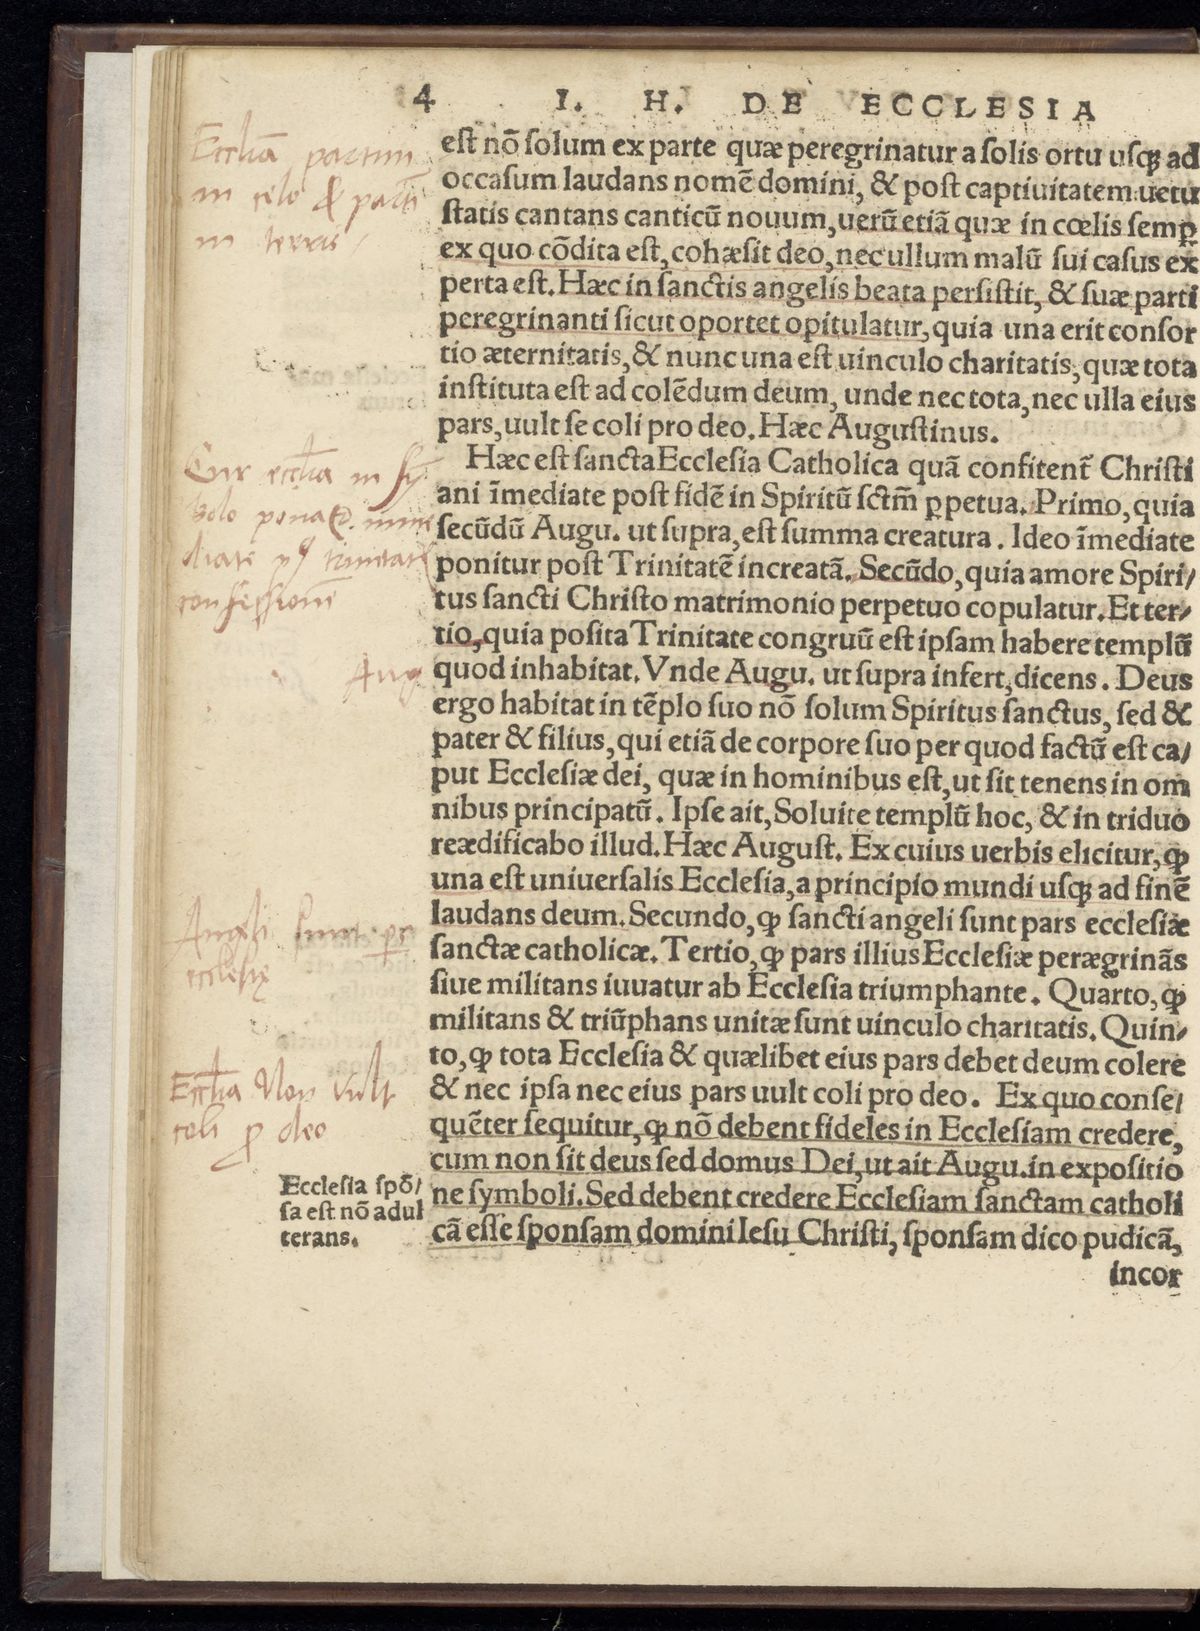 4 I. H. DE ECCLESIA
Eccl̄ia partim
in celo & parti
in terris
est nō ſolum ex parte quæ peregrinatur a ſolis ortu uſqꝫ ad
occaſum laudans nomē domini, & poſt captiuitatem uetu
ſtatis cantans canticū nouum, uerū etiā quæ in cœlis ſemꝑ
ex quo cōdita eſt, cohæſit deo, nec ullum malū ſui caſus ex
perta eſt. Hæc in ſanctis angelis beata perſiſtit, & ſuæ parti
peregrinanti ſicut oportet opitulatur, quia una erit conſor
tio æternitatis, & nunc una eſt uinculo charitatis, quæ tota
inſtituta eſt ad colēdum deum, unde nec tota, nec ulla eius
pars, uult ſe coli pro deo. Hæc Auguſtinus.
Cur eccl̄ia in ſy
bolo ponat̃ imme
diate trinitatis
confeſſionē
Hæc eſt ſancta Eccleſia Catholica quā confitent̃ Chriſti
ani īmediate poſt fidē in Spiritū ſctm̄ ꝑpetua. Primo, quia
ſecūdū Augu. ut ſupra, eſt ſumma creatura. Ideo īmediate
ponitur poſt Trinitatē increatā. Secūdo, quia amore Spiri/
tus ſancti Chriſto matrimonio perpetuo copulatur. Et ter/
tio, quia poſita Trinitate congruū eſt ipſam habere templū
Aug
quod inhabitat. Vnde Augu. ut ſupra infert, dicens. Deus
ergo habitat in tēplo ſuo nō ſolum Spiritus ſanctus, ſed &
pater & filius, qui etiā de corpore ſuo per quod factū eſt ca/
put Eccleſiæ dei, quæ in hominibus eſt, ut ſit tenens in om
nibus principatū. Ipſe ait, Soluite templū hoc, & in triduo
reædificabo illud. Hæc Auguſt. Ex cuius uerbis elicitur, ꝙ
una eſt uniuerſalis Eccleſia, a principio mundi uſqꝫ ad finē
Angeli ſunt pꝛ
ecclesię
laudans deum. Secundo, ꝙ ſancti angeli ſunt pars eccleſiæ
ſanctæ catholicæ. Tertio, ꝙ pars illius Eccleſiæ perægrināſ
ſiue militans iuuatur ab Eccleſia triumphante. Quarto, ꝙ
militans & triūphans unitæ ſunt uinculo charitatis. Quin/
to, ꝙ tota Eccleſia & quælibet eius pars debet deum colere
Eccl̄ia Non vult
coli ꝓ deo
& nec ipſa nec eius pars uult coli pro deo. Ex quo conſe/
quēter ſequitur, ꝙ nō debent fideles in Eccleſiam credere,
cum non ſit deus ſed domus Dei, ut ait Augu. in expoſitio
ne ſymboli. Sed debent credere Eccleſiam ſanctam catholi
cā eſſe ſponſam domini Ieſu Chriſti, ſponſam dico pudicā,
Eccleſia ſpō/
ſa eſt nō adul
terans.
incor